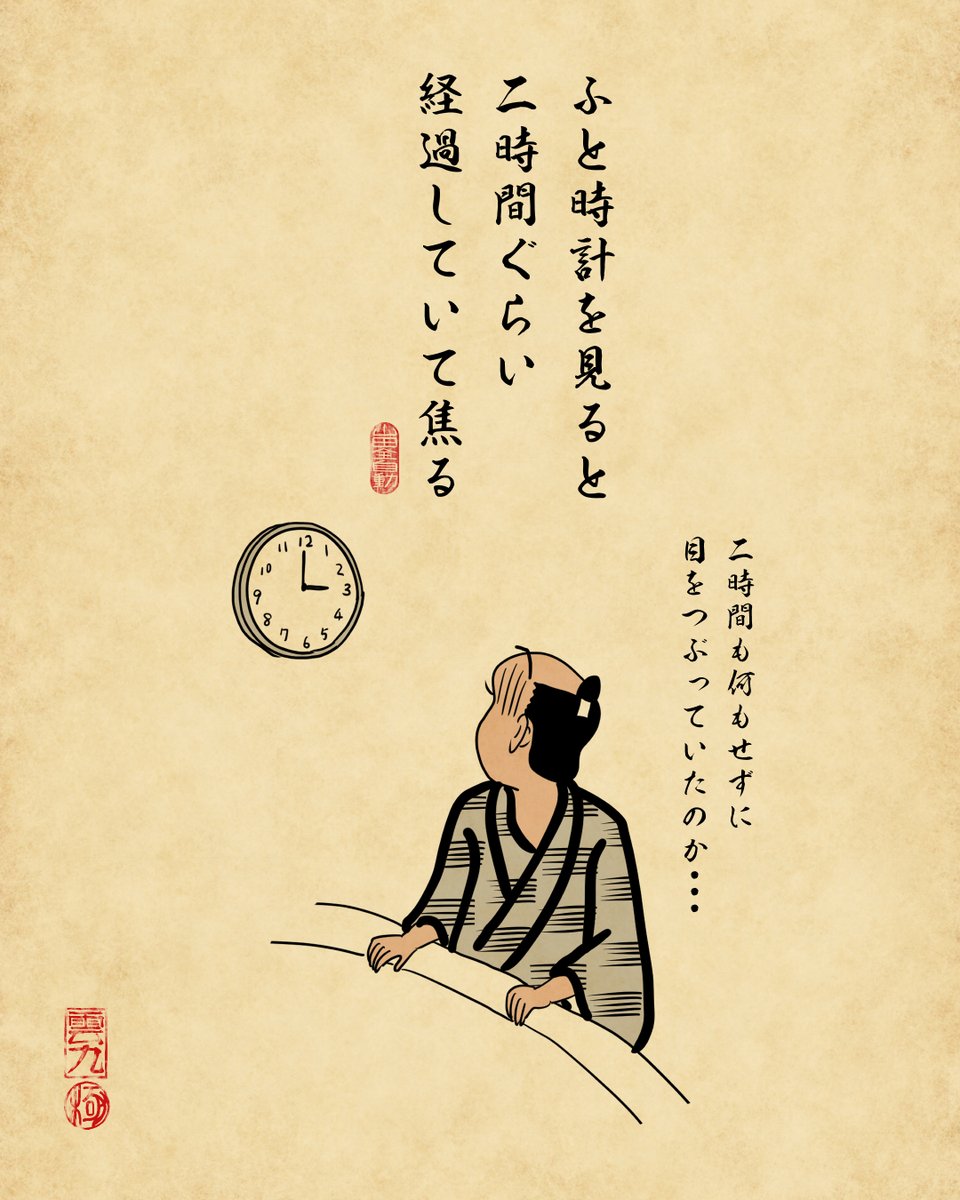 ふと時計を見ると
二時間ぐらい
経過していて焦る
二時間も何もせずに
目をつぶっていたのか・・・
12
1
2
3
4
5
6
7
8
9
10
11
雲丸
極